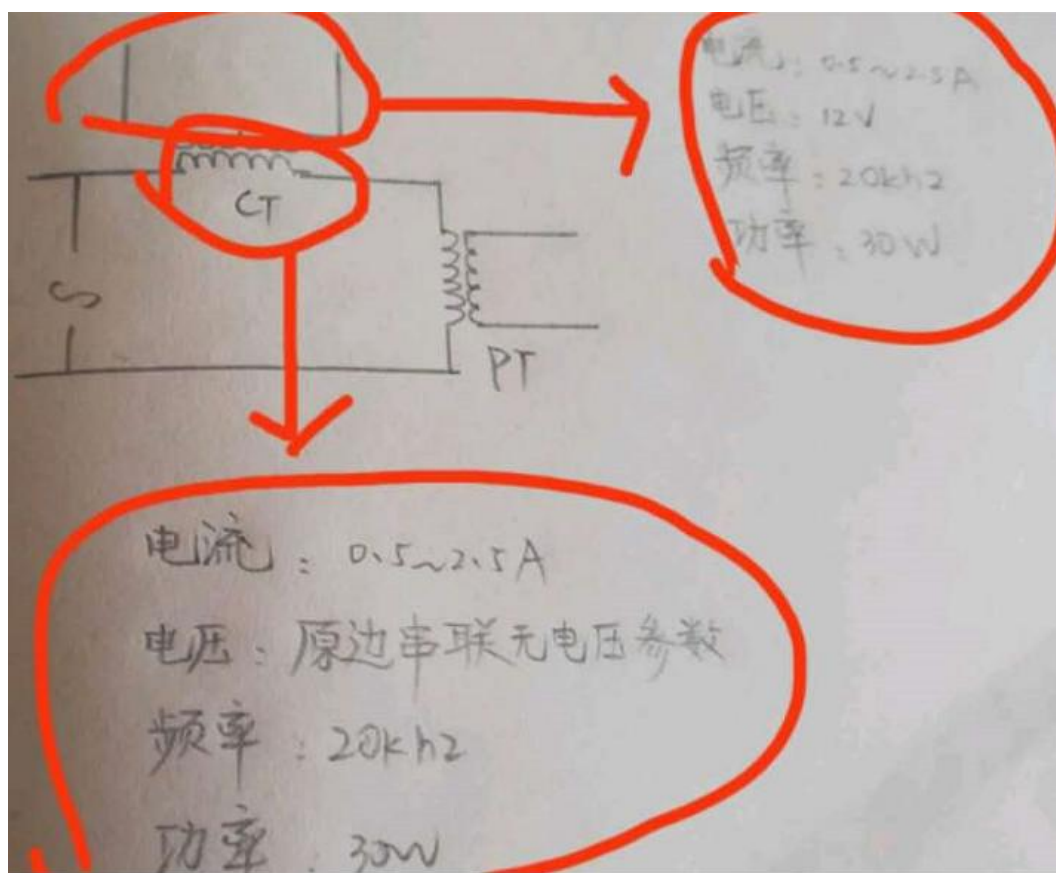 电流：0.5~2.5A
电压：12V
频率：20khz
功率：30W
CT
S
PT
电流：0.5~2.5A
电压：原边串联无电压参数
频率：20khz
功率：30W